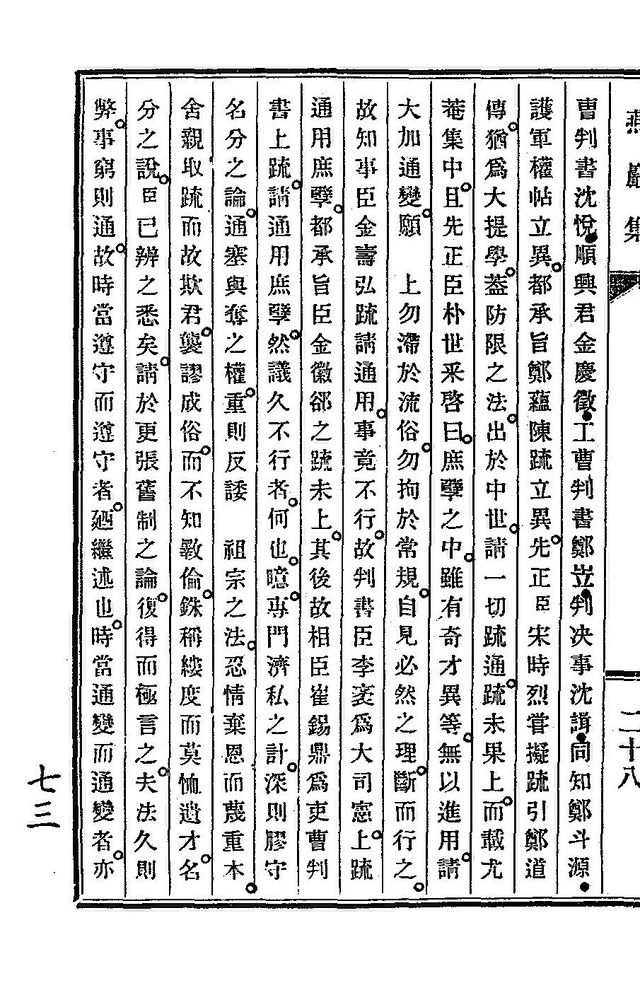 燕巖集
二十八
曹判書沈悅順興君金慶徵工曹判書鄭岦判决事沈諿同知鄭斗源
護軍權怗立異都承旨鄭蘊陳疏立異先正臣宋時烈甞擬疏引鄭道
傳猶爲大提學葢防限之法出於中世請一切疏通疏未果上而載尤
菴集中且先正臣朴世采啓曰庶孼之中雖有奇才異等無以進用請
大加通變願 上勿滯於流俗勿拘於常規自見必然之理斷而行之
故知事臣金壽弘疏請通用事竟不行故判書臣李袤爲大司憲上疏
通用庶孼都承旨臣金徽卻之疏未上其後故相臣崔錫鼎爲吏曹判
書上疏請通用庶孼然議久不行者何也噫專門濟私之計深則膠守
名分之論通塞與奪之權重則反諉 祖宗之法忍情棄恩而蔑重本
舍親取疏而故欺君襲謬成俗而不知斁倫銖稱縷度而莫恤遺才名
分之說臣已辨之悉矣請於更張舊制之論復得而極言之夫法久則
弊事窮則通故時當遵守而遵守者廼繼述也時當通變而通變者亦
七三